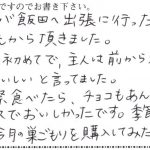 ですのでお書き下さい。
が飯田へ出張に行った
から頂きました。
初めてで、主人は前から
いしいと言ってました。
食べたら、チョコもあん
スでおいしかったです。季節
今月の巣ごもりを購入してみた